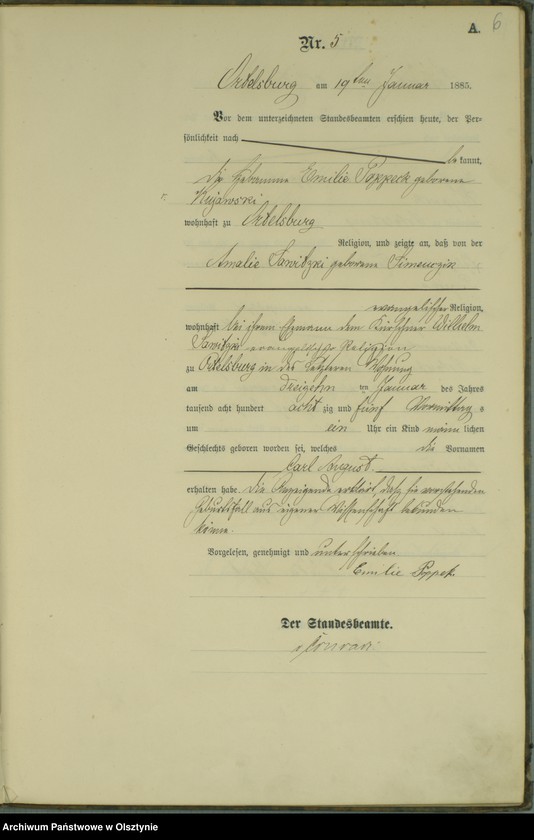 A. 6
Nr. 5
Ortelsburg am 19ten Januar 1885.
Vor dem unterzeichneten Standesbeamten erschien heute, der Per-
sönlichkeit nach
bekannt,
die Hebamme Emilie Poppeck geborene
Kujawski
wohnhaft zu Ortelsburg
Religion, und zeigte an, daß von der
Amalie Sawitzki geborene Simenczik
evangelischer Religion,
wohnhaft bei ihrem Ehemann dem Kürschner Wilhelm
Sawitzki evangelischer Religion
zu Ortelsburg in des Letzteren Wohnung
am dreizehn ten Januar des Jahres
tausend acht hundert acht zig und fünf Vormittag s
um ein Uhr ein Kind männ lichen
Geschlechts geboren worden sei, welches die Vornamen
Carl August
erhalten habe. Die Anzeigende erklärt, daß sie vorstehenden
Geburtsfall aus eigener Wissenschaft bekunden
könne.
Vorgelesen, genehmigt und unterschrieben
Emilie Poppek
Der Standesbeamte.
Archiwum Państwowe w Olsztynie